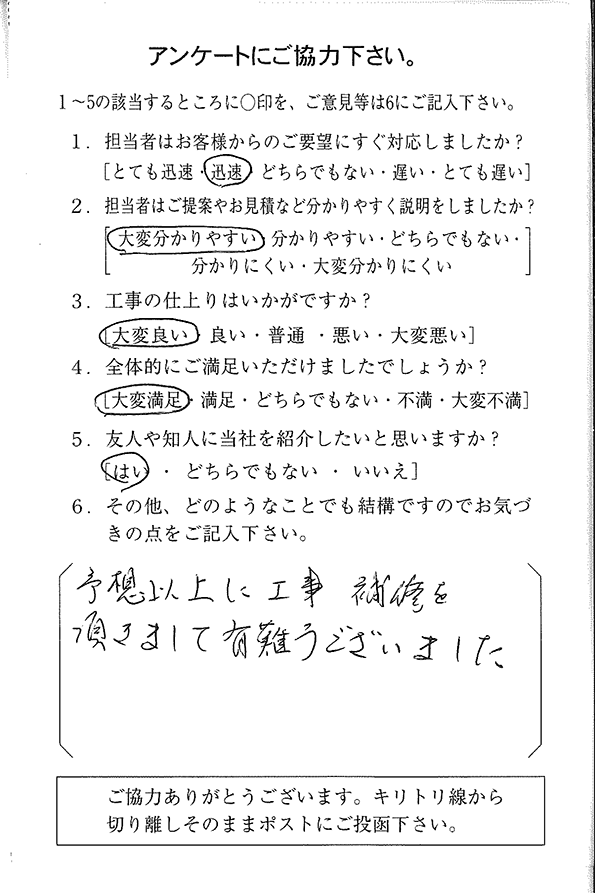 アンケートにご協力下さい。
1～5の該当するところに〇印を、ご意見等は6にご記入下さい。
1．担当者はお客様からのご要望にすぐ対応しましたか？
［とても迅速・迅速・どちらでもない・遅い・とても遅い］
2．担当者はご提案やお見積など分かりやすく説明をしましたか？
［大変分かりやすい・分かりやすい・どちらでもない・
分かりにくい・大変分かりにくい］
3．工事の仕上りはいかがですか？
［大変良い・良い・普通・悪い・大変悪い］
4．全体的にご満足いただけましたでしょうか？
［大変満足・満足・どちらでもない・不満・大変不満］
5．友人や知人に当社を紹介したいと思いますか？
［はい・どちらでもない・いいえ］
6．その他、どのようなことでも結構ですのでお気づ
きの点をご記入下さい。
予想以上に工事 補修を
頂きまして有難うございました
ご協力ありがとうございます。キリトリ線から
切り離しそのままポストにご投函下さい。